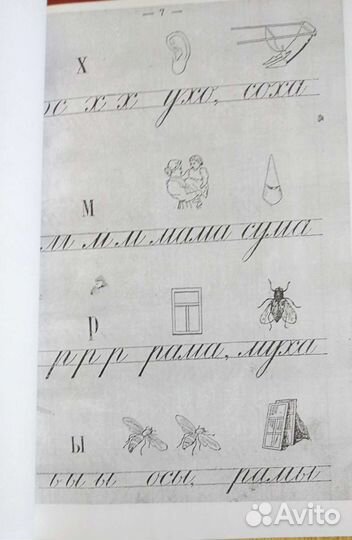 — 7 —
х
х х х ухо, соха
м
м м м мама сума
р
р р р рама, муха
ы
ы ы ы осы, рамы
Avito